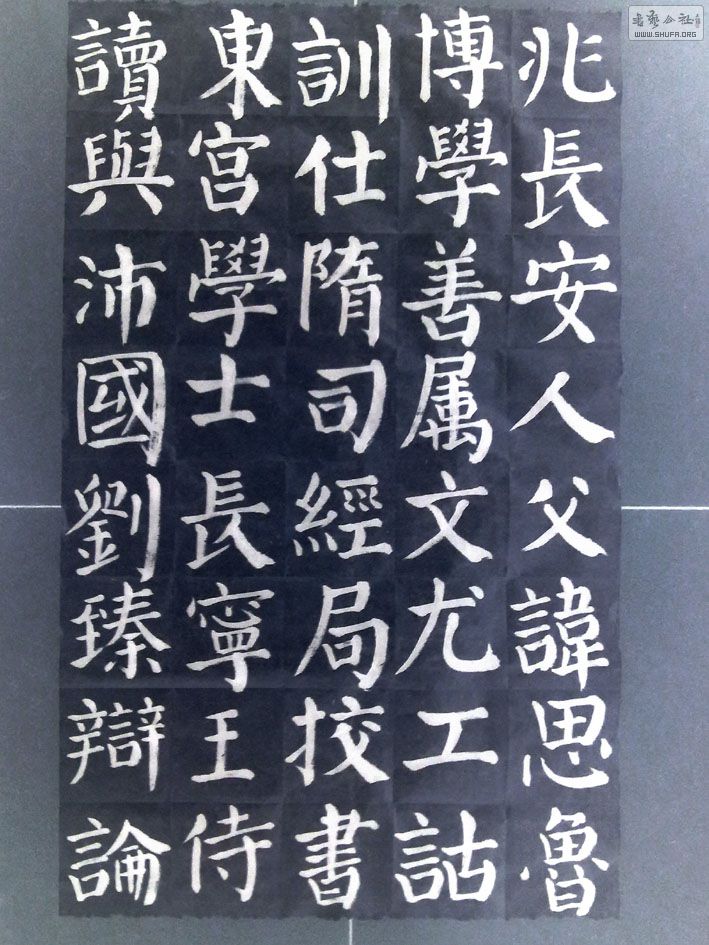 兆長安人父諱思魯
博學善属文尤工詁
訓仕隋司經局挍書
東宫學士長寧王侍
讀與沛國劉臻辯論
WWW.SHUFA.ORG